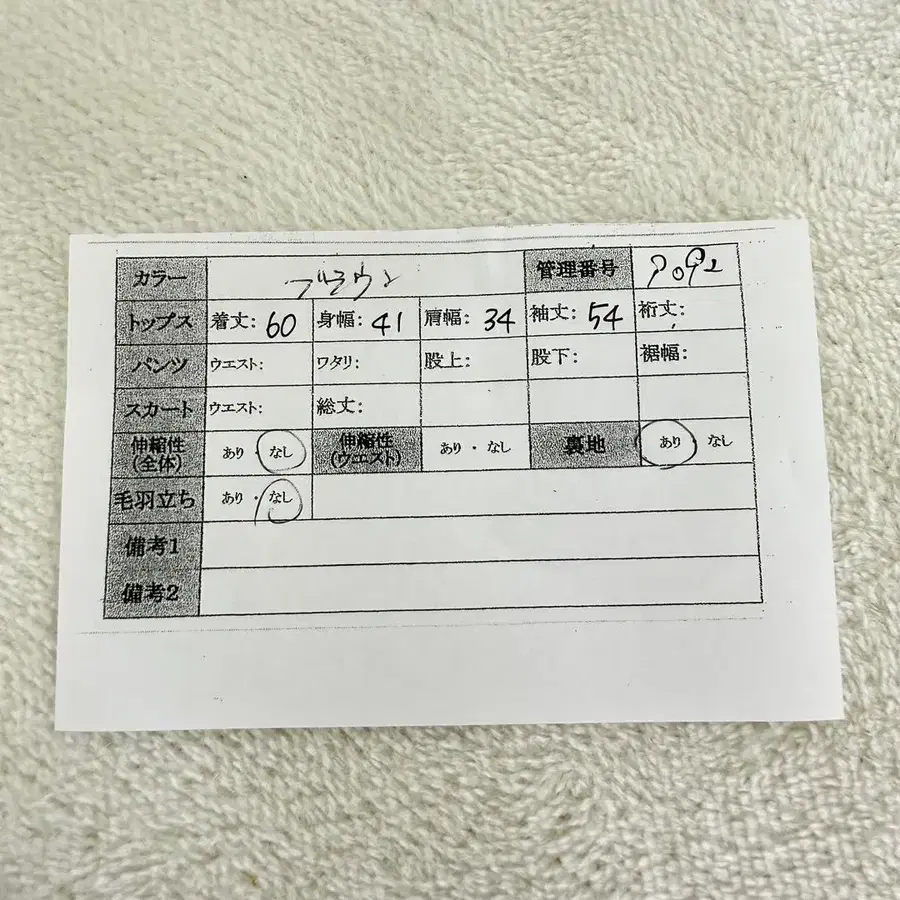 カラー ブラウン 管理番号 9092
トップス 着丈: 60 身幅: 41 肩幅: 34 袖丈: 54 裄丈:
パンツ ウエスト: ワタリ: 股上: 股下: 裾幅:
スカート ウエスト: 総丈:
伸縮性 (全体) あり ・ なし 伸縮性 (ウエスト) あり ・ なし 裏地 あり ・ なし
毛羽立ち あり ・ なし
備考1
備考2